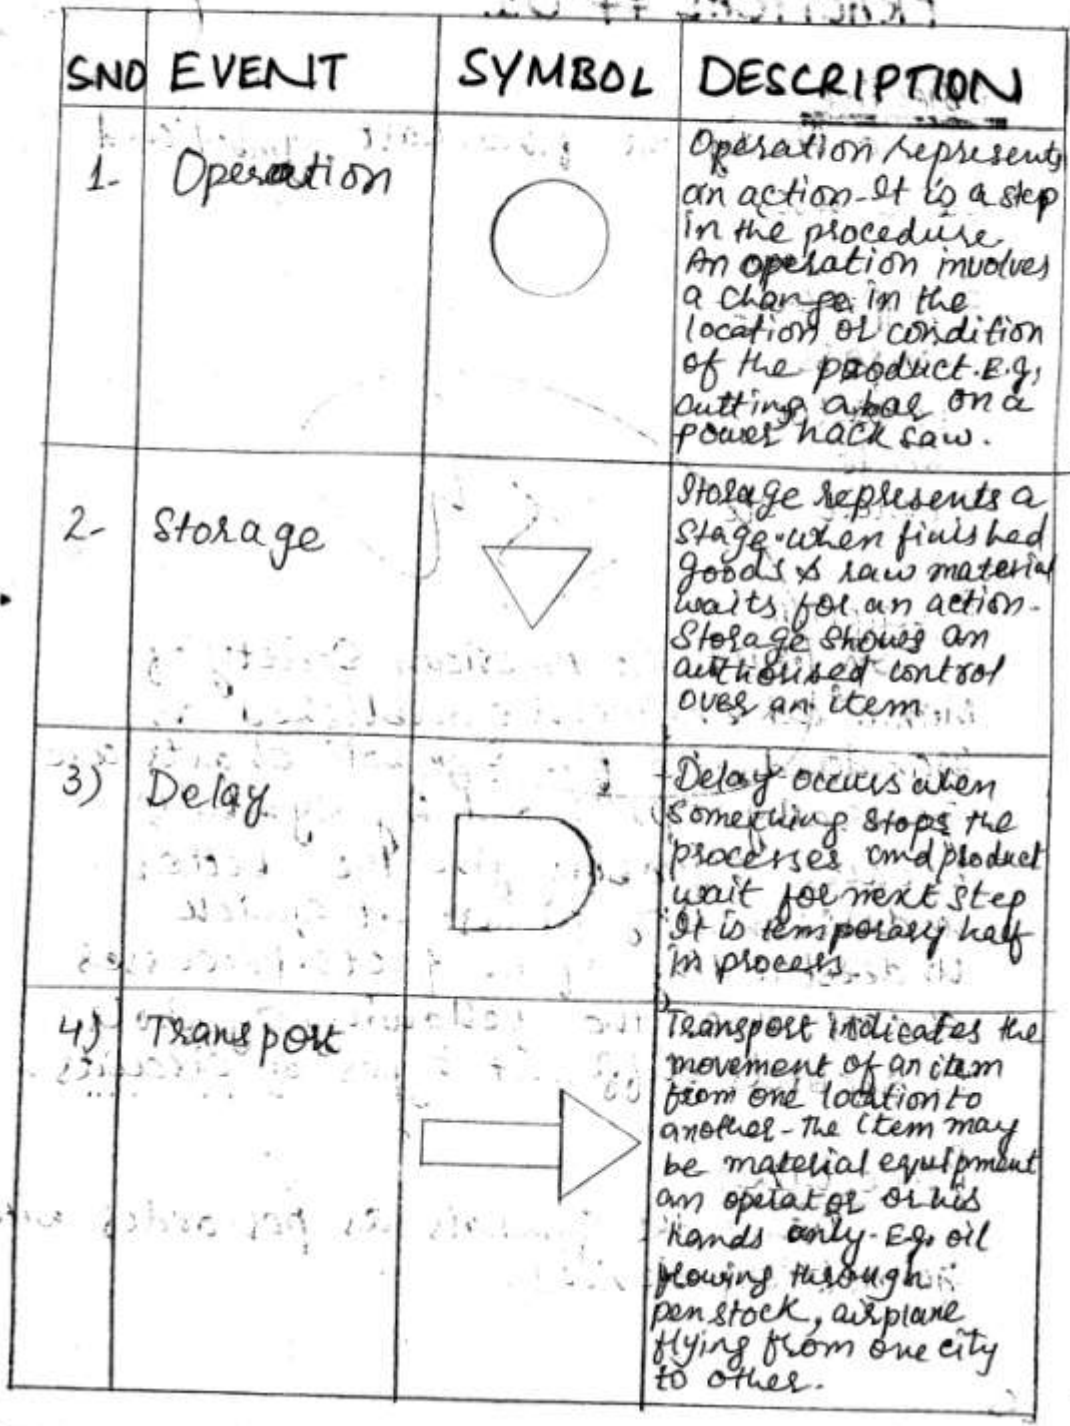 SNO EVENT SYMBOL DESCRIPTION
1- Operation
Operation represents
an action. It is a step
in the procedure.
An operation involves
a change in the
location or condition
of the product. E.g,
cutting a bar on a
power hack saw.
2- Storage
Storage represents a
Stage when finished
goods & raw material
waits for an action.
Storage shows an
authorised control
over an item
3) Delay
Delay occurs when
something stops the
processes and product
wait for next step
It is temporary half
in process
4) Transport
Transport indicates the
movement of an item
from one location to
another - The item may
be material equipment
an operator or his
hands only. E.g. oil
flowing through
penstock, airplane
flying from one city
to other.